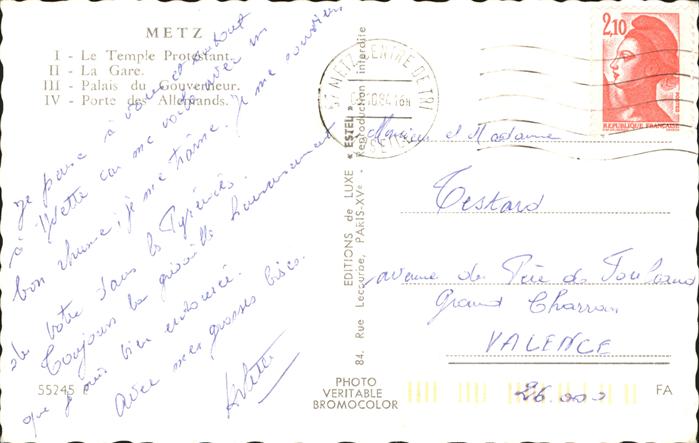 METZ
I - Le Temple Protestant.
II - La Gare.
III - Palais du Gouverneur.
IV - Porte des Allemands.
Je pense à vous et surtout
à Yvette car me voilà avec un
bon rhume, je me traîne. Je me souviens
de votre dans les Pyrénées.
Toujours la grisaille heureusement
que je suis bien entourée.
Avec mes grosses bises.
55245
ÉDITIONS de LUXE « ESTEL »
84, Rue Lecourbe, PARIS-XVe - Reproduction interdite
PHOTO
VERITABLE
BROMOCOLOR
57 METZ CENTRE DE TRI
MOSELLE
2,10
REPUBLIQUE FRANÇAISE
Monsieur et Madame
Testard
avenue du Père de
Grand Charran
VALENCE
26.000
FA